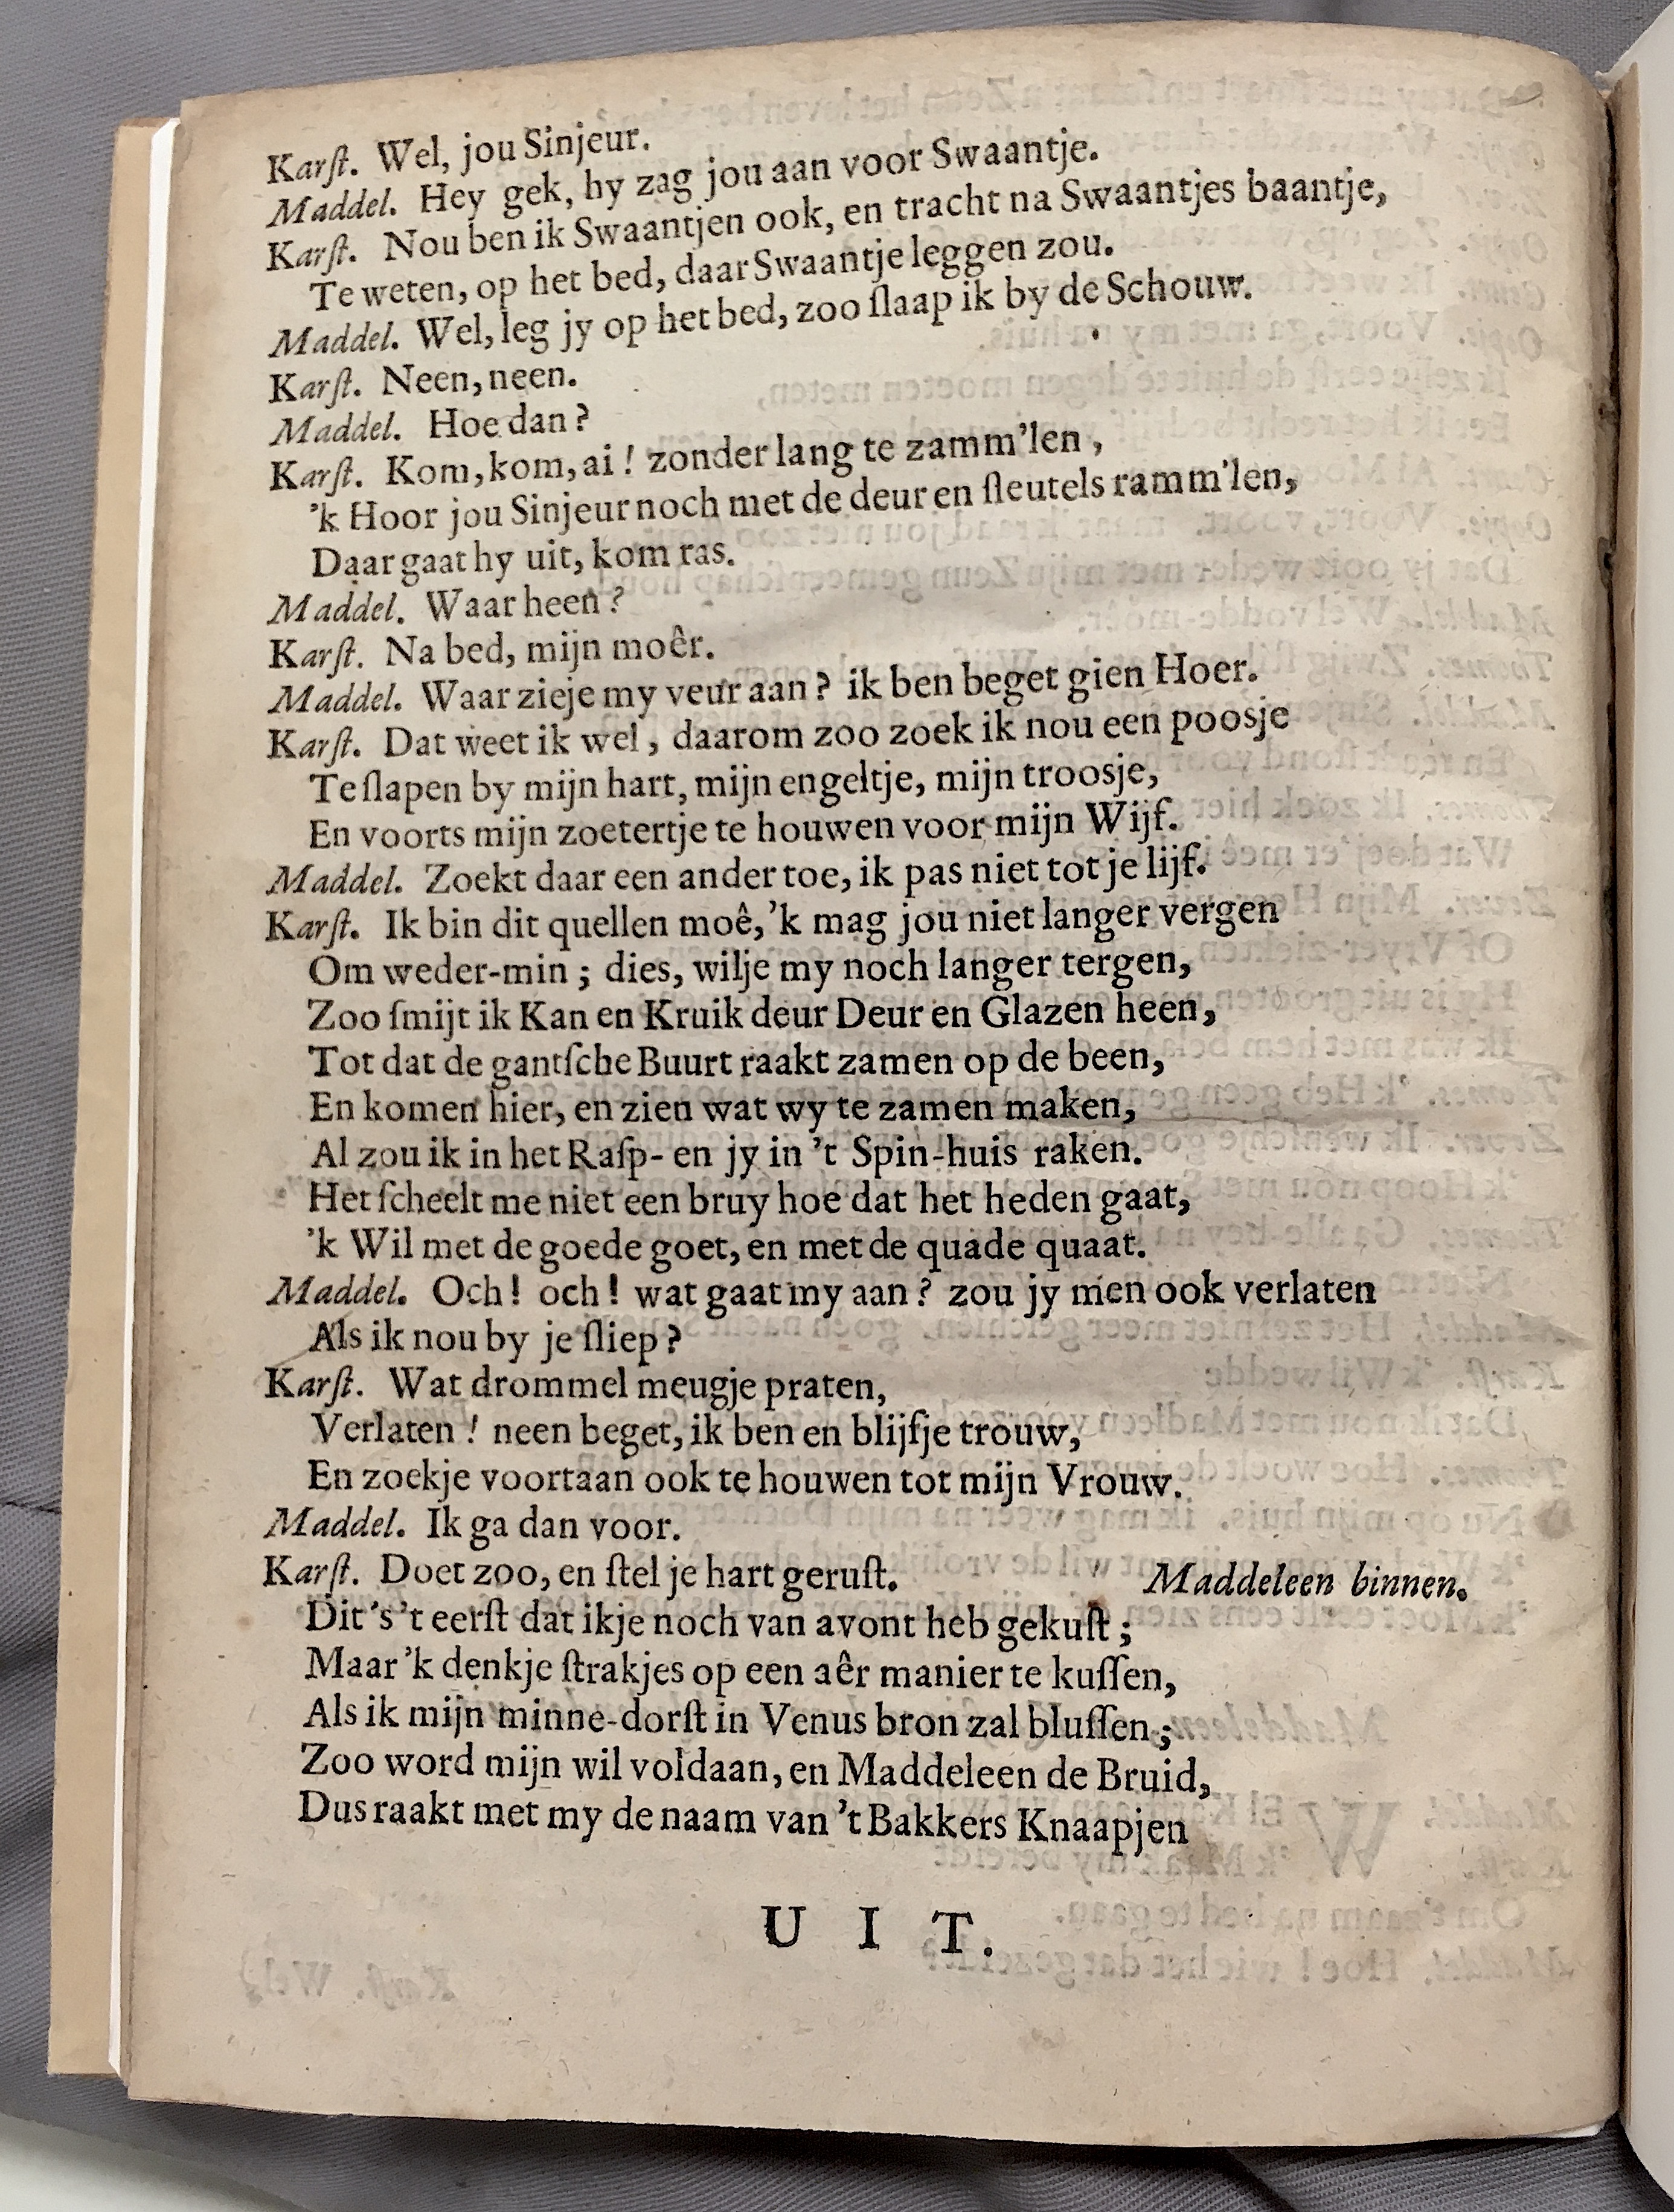 Karſt. Wel, jou Sinjeur.
Maddel. Hey gek, hy zag jou aan voor Swaantje.
Karſt. Nou ben ik Swaantjen ook, en tracht na Swaantjes baantje,
Te weten, op het bed, daar Swaantje leggen zou.
Maddel. Wel, leg jy op het bed, zoo ſlaap ik by de Schouw.
Karſt. Neen, neen.
Maddel. Hoe dan?
Karſt. Kom, kom, ai! zonder lang te zamm'len,
'k Hoor jou Sinjeur noch met de deur en ſleutels ramm'len,
Daar gaat hy uit, kom ras.
Maddel. Waar heen?
Karſt. Na bed, mijn moêr.
Maddel. Waar zieje my veur aan? ik ben beget gien Hoer.
Karſt. Dat weet ik wel, daarom zoo zoek ik nou een poosje
Te ſlapen by mijn hart, mijn engeltje, mijn troosje,
En voorts mijn zoetertje te houwen voor mijn Wijf.
Maddel. Zoekt daar een ander toe, ik pas niet tot je lijf.
Karſt. Ik bin dit quellen moê, 'k mag jou niet langer vergen
Om weder-min; dies, wilje my noch langer tergen,
Zoo ſmijt ik Kan en Kruik deur Deur en Glazen heen,
Tot dat de gantſche Buurt raakt zamen op de been,
En komen hier, en zien wat wy te zamen maken,
Al zou ik in het Raſp- en jy in 't Spin-huis raken.
Het ſcheelt me niet een bruy hoe dat het heden gaat,
'k Wil met de goede goet, en met de quade quaat.
Maddel. Och! och! wat gaat my aan? zou jy men ook verlaten
Als ik nou by je ſliep?
Karſt. Wat drommel meugje praten,
Verlaten! neen beget, ik ben en blijfje trouw,
En zoekje voortaan ook te houwen tot mijn Vrouw.
Maddel. Ik ga dan voor.
Karſt. Doet zoo, en ſtel je hart geruſt. Maddeleen binnen.
Dit 's 't eerſt dat ikje noch van avont heb gekuſt;
Maar 'k denkje ſtrakjes op een aêr manier te kuſſen,
Als ik mijn minne-dorſt in Venus bron zal bluſſen;
Zoo word mijn wil voldaan, en Maddeleen de Bruid,
Dus raakt met my de naam van 't Bakkers Knaapjen
UIT.